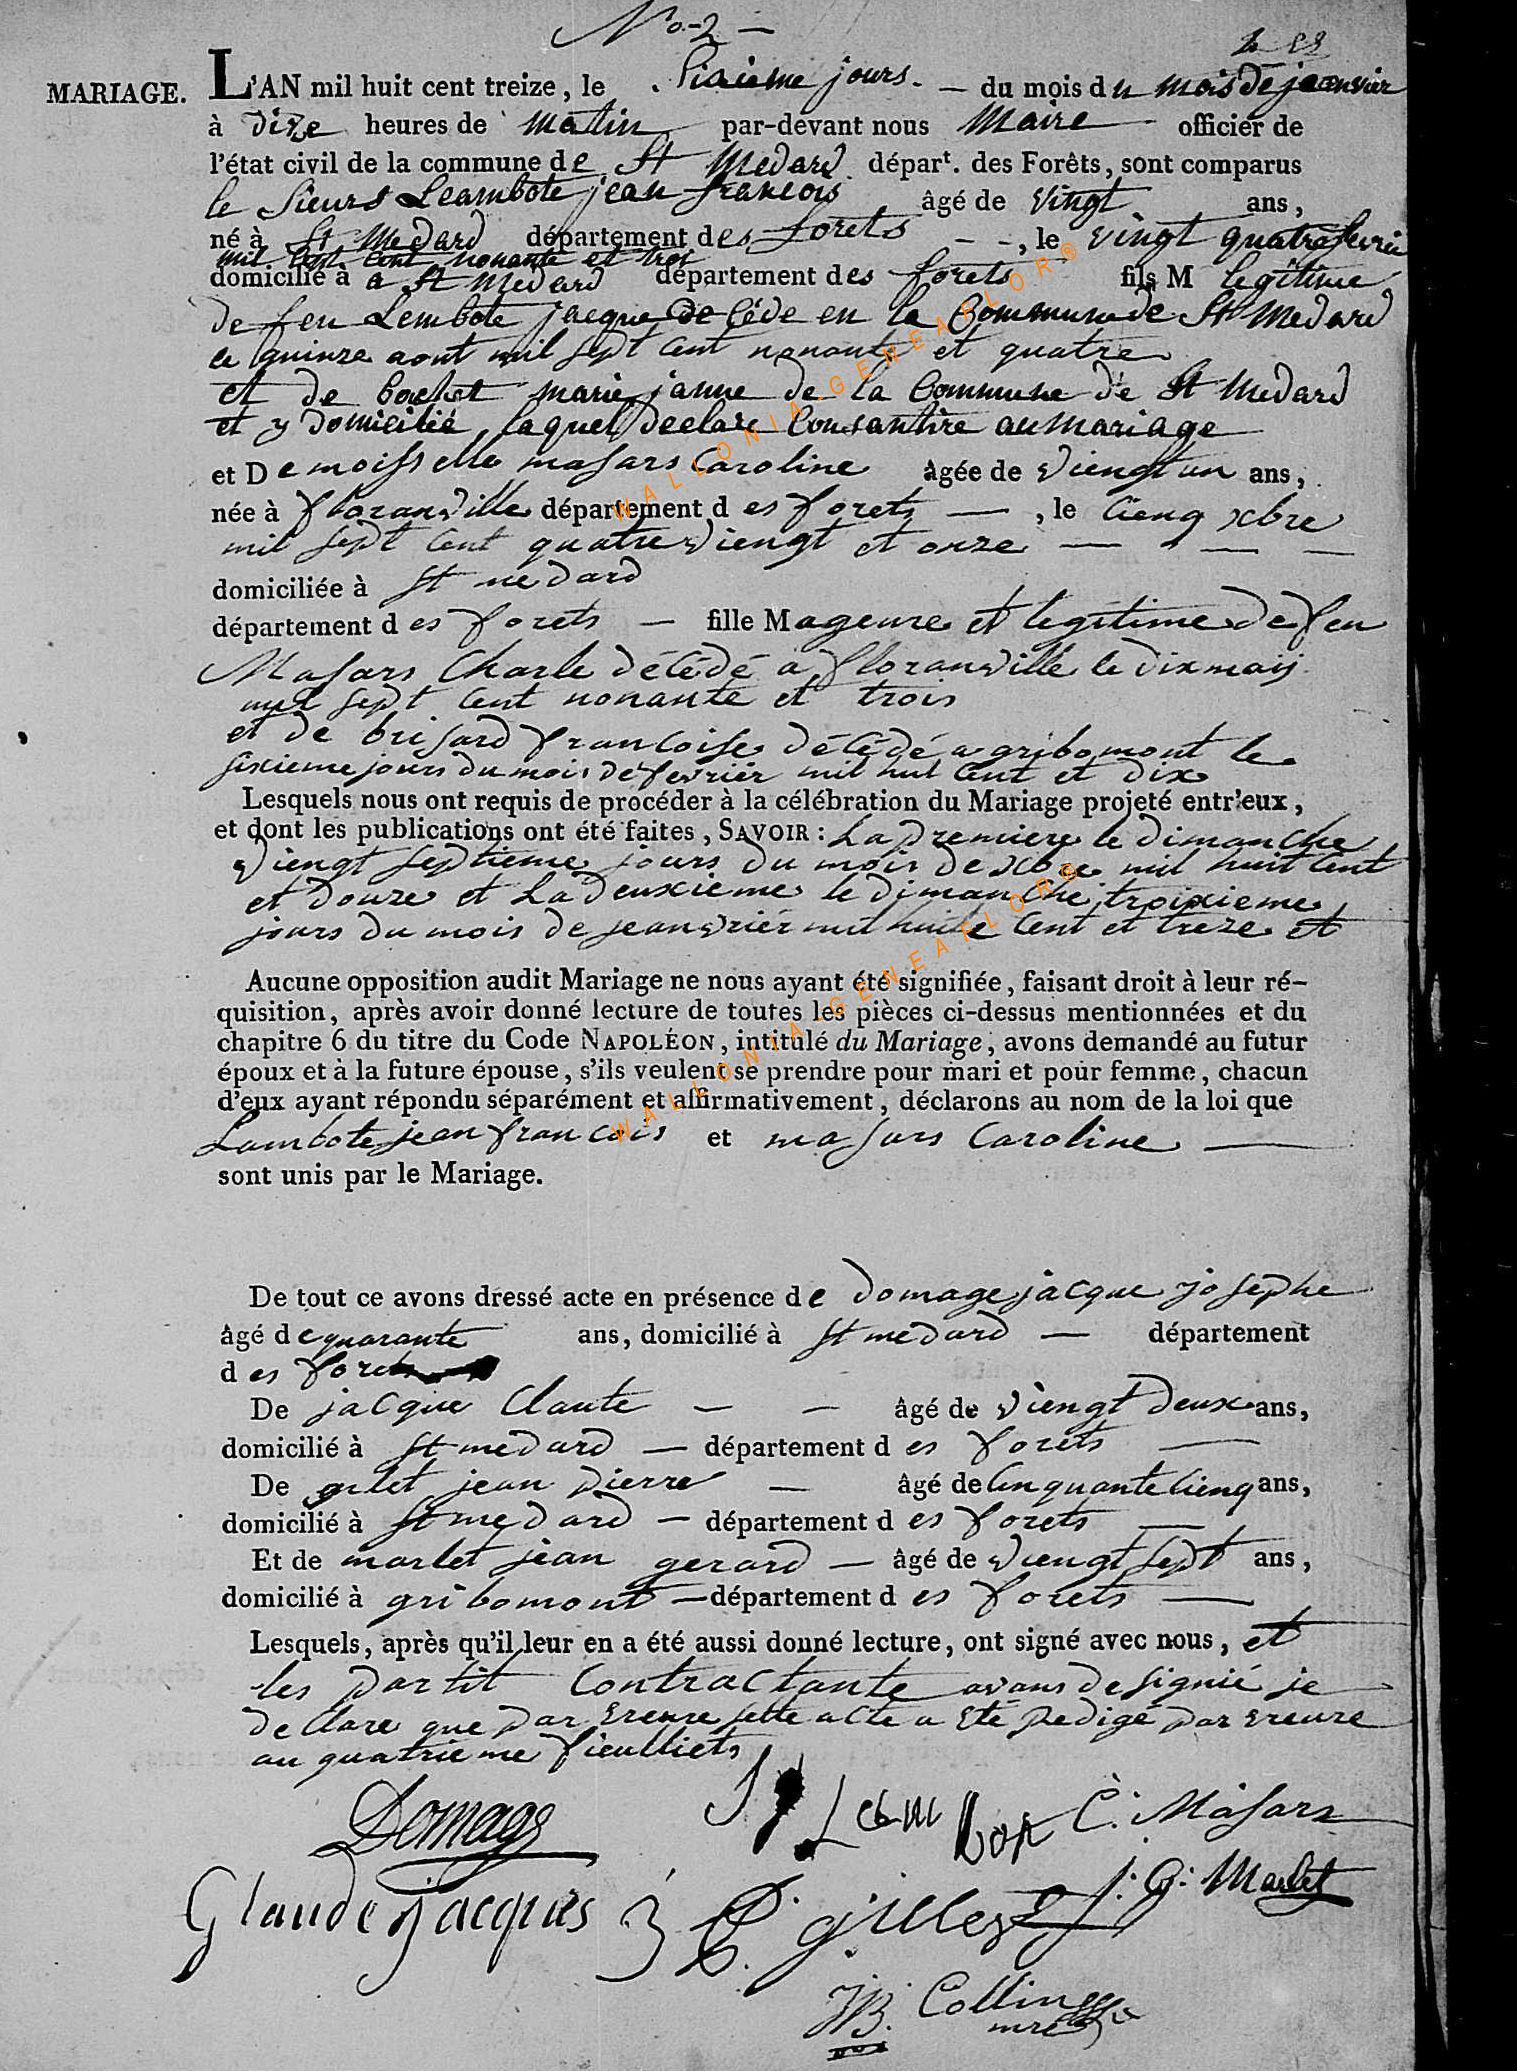 No. 2 —
MARIAGE. L'AN mil huit cent treize, le Sixieme jours — du mois du mois de jeanvier
à dize heures de matin par-devant nous Maire officier de
l'état civil de la commune de St Medard départ. des Forêts, sont comparus
le Sieurs Leambote jean francois âgé de vingt ans,
né à St Medard département des forets — — , le vingt quatre fevrie
mil sept cent nonante et troi
domicilié à a St Medard département des forets fils M legitime
de feu Lembote jacque de cède en la Commune de St Medard
le quinze aout mil sept cent nonante et quatre
et de bochet marie janne de la Commune de St Medard
et y domicilié, laquel declare Consantire au mariage
et Demoisselle masars Caroline âgée de viengt un ans,
née à floranville département des forets — , le Cienq xbre
mil sept cent quatre viengt et onze — — —
domiciliée à St medard
département des forets — fille Mageure et legitime de feu
Masars Charle décédé a floranville le dix maij
mil sept cent nonante et trois
et de brisard francoise décédé a gribomont le
sixieme jours du mois de fevrier mil huit Cent et dix
Lesquels nous ont requis de procéder à la célébration du Mariage projeté entr'eux,
et dont les publications ont été faites, SAVOIR : La premiere le dimanche
viengt septieme jours du mois de xbre mil huit Cent
et douze et La deuxieme le dimanche troixieme
jours du mois de jeanvriér mil huite Cent et treze et
Aucune opposition audit Mariage ne nous ayant été signifiée, faisant droit à leur ré-
quisition, après avoir donné lecture de toutes les pièces ci-dessus mentionnées et du
chapitre 6 du titre du Code NAPOLÉON, intitulé du Mariage, avons demandé au futur
époux et à la future épouse, s'ils veulent se prendre pour mari et pour femme, chacun
d'eux ayant répondu séparément et affirmativement, déclarons au nom de la loi que
Lambote jean francois et masars Caroline —
sont unis par le Mariage.
De tout ce avons dressé acte en présence de domage jacque josephe
âgé de quarante ans, domicilié à St medard — département
des forets
De jacque Claute — — âgé de viengt deux ans,
domicilié à St medard — département des forets —
De gilet jean pierre — âgé de Cinquante Cienq ans,
domicilié à St medard — département des forets —
Et de marlet jean gerard — âgé de viengt sept ans,
domicilié à gribomont — département des forets —
Lesquels, après qu'il leur en a été aussi donné lecture, ont signé avec nous, et
les partit Contractante avans designié je
declare que par Ereure sette acte a été Redigé par ereure
au quatrieme fieulliets
Domage J f Lembot C. Masars
Glaude jacques J. P. gillez J. G. Marlet
JB. Collin
mre
WALLONIA-GENEAFLOR®
WALLONIA-GENEAFLOR®